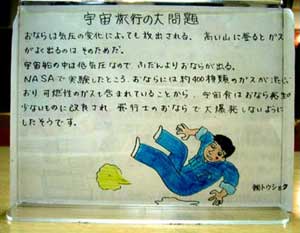 宇宙旅行の大問題
おならは気圧の変化によっても放出される。高い山に登るとガス
がよく出るのはそのためだ。
宇宙船の中は低気圧なので、ふだんよりおならが出る。
NASAで実験したところ、おならには約400種類のガスが混じって
おり可燃性のガスも含まれていることから、宇宙食はおなら発生の
少ないものに改良され、飛行士のおならで大爆発しないように
したそうです。
㈱トウショク